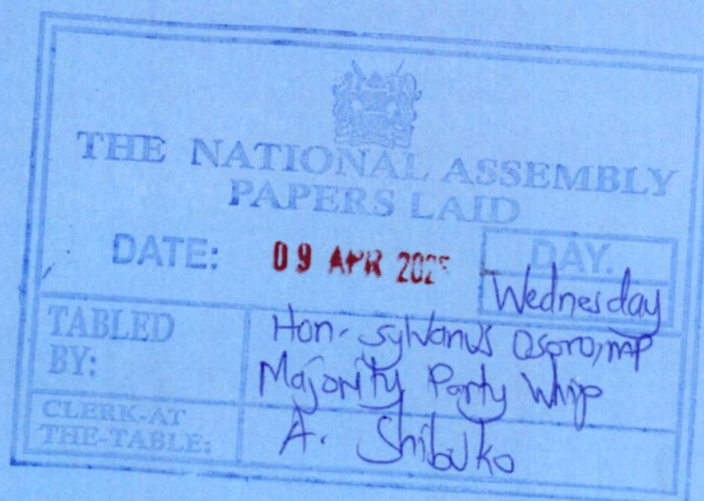 THE NATIONAL ASSEMBLY
PAPERS LAID
DATE: 09 APR 2025 DAY.
Wednesday
TABLED BY: Hon. Sylvanus Osoro, MP
Majority Party Whip
CLERK-AT THE-TABLE: A. Shibuko